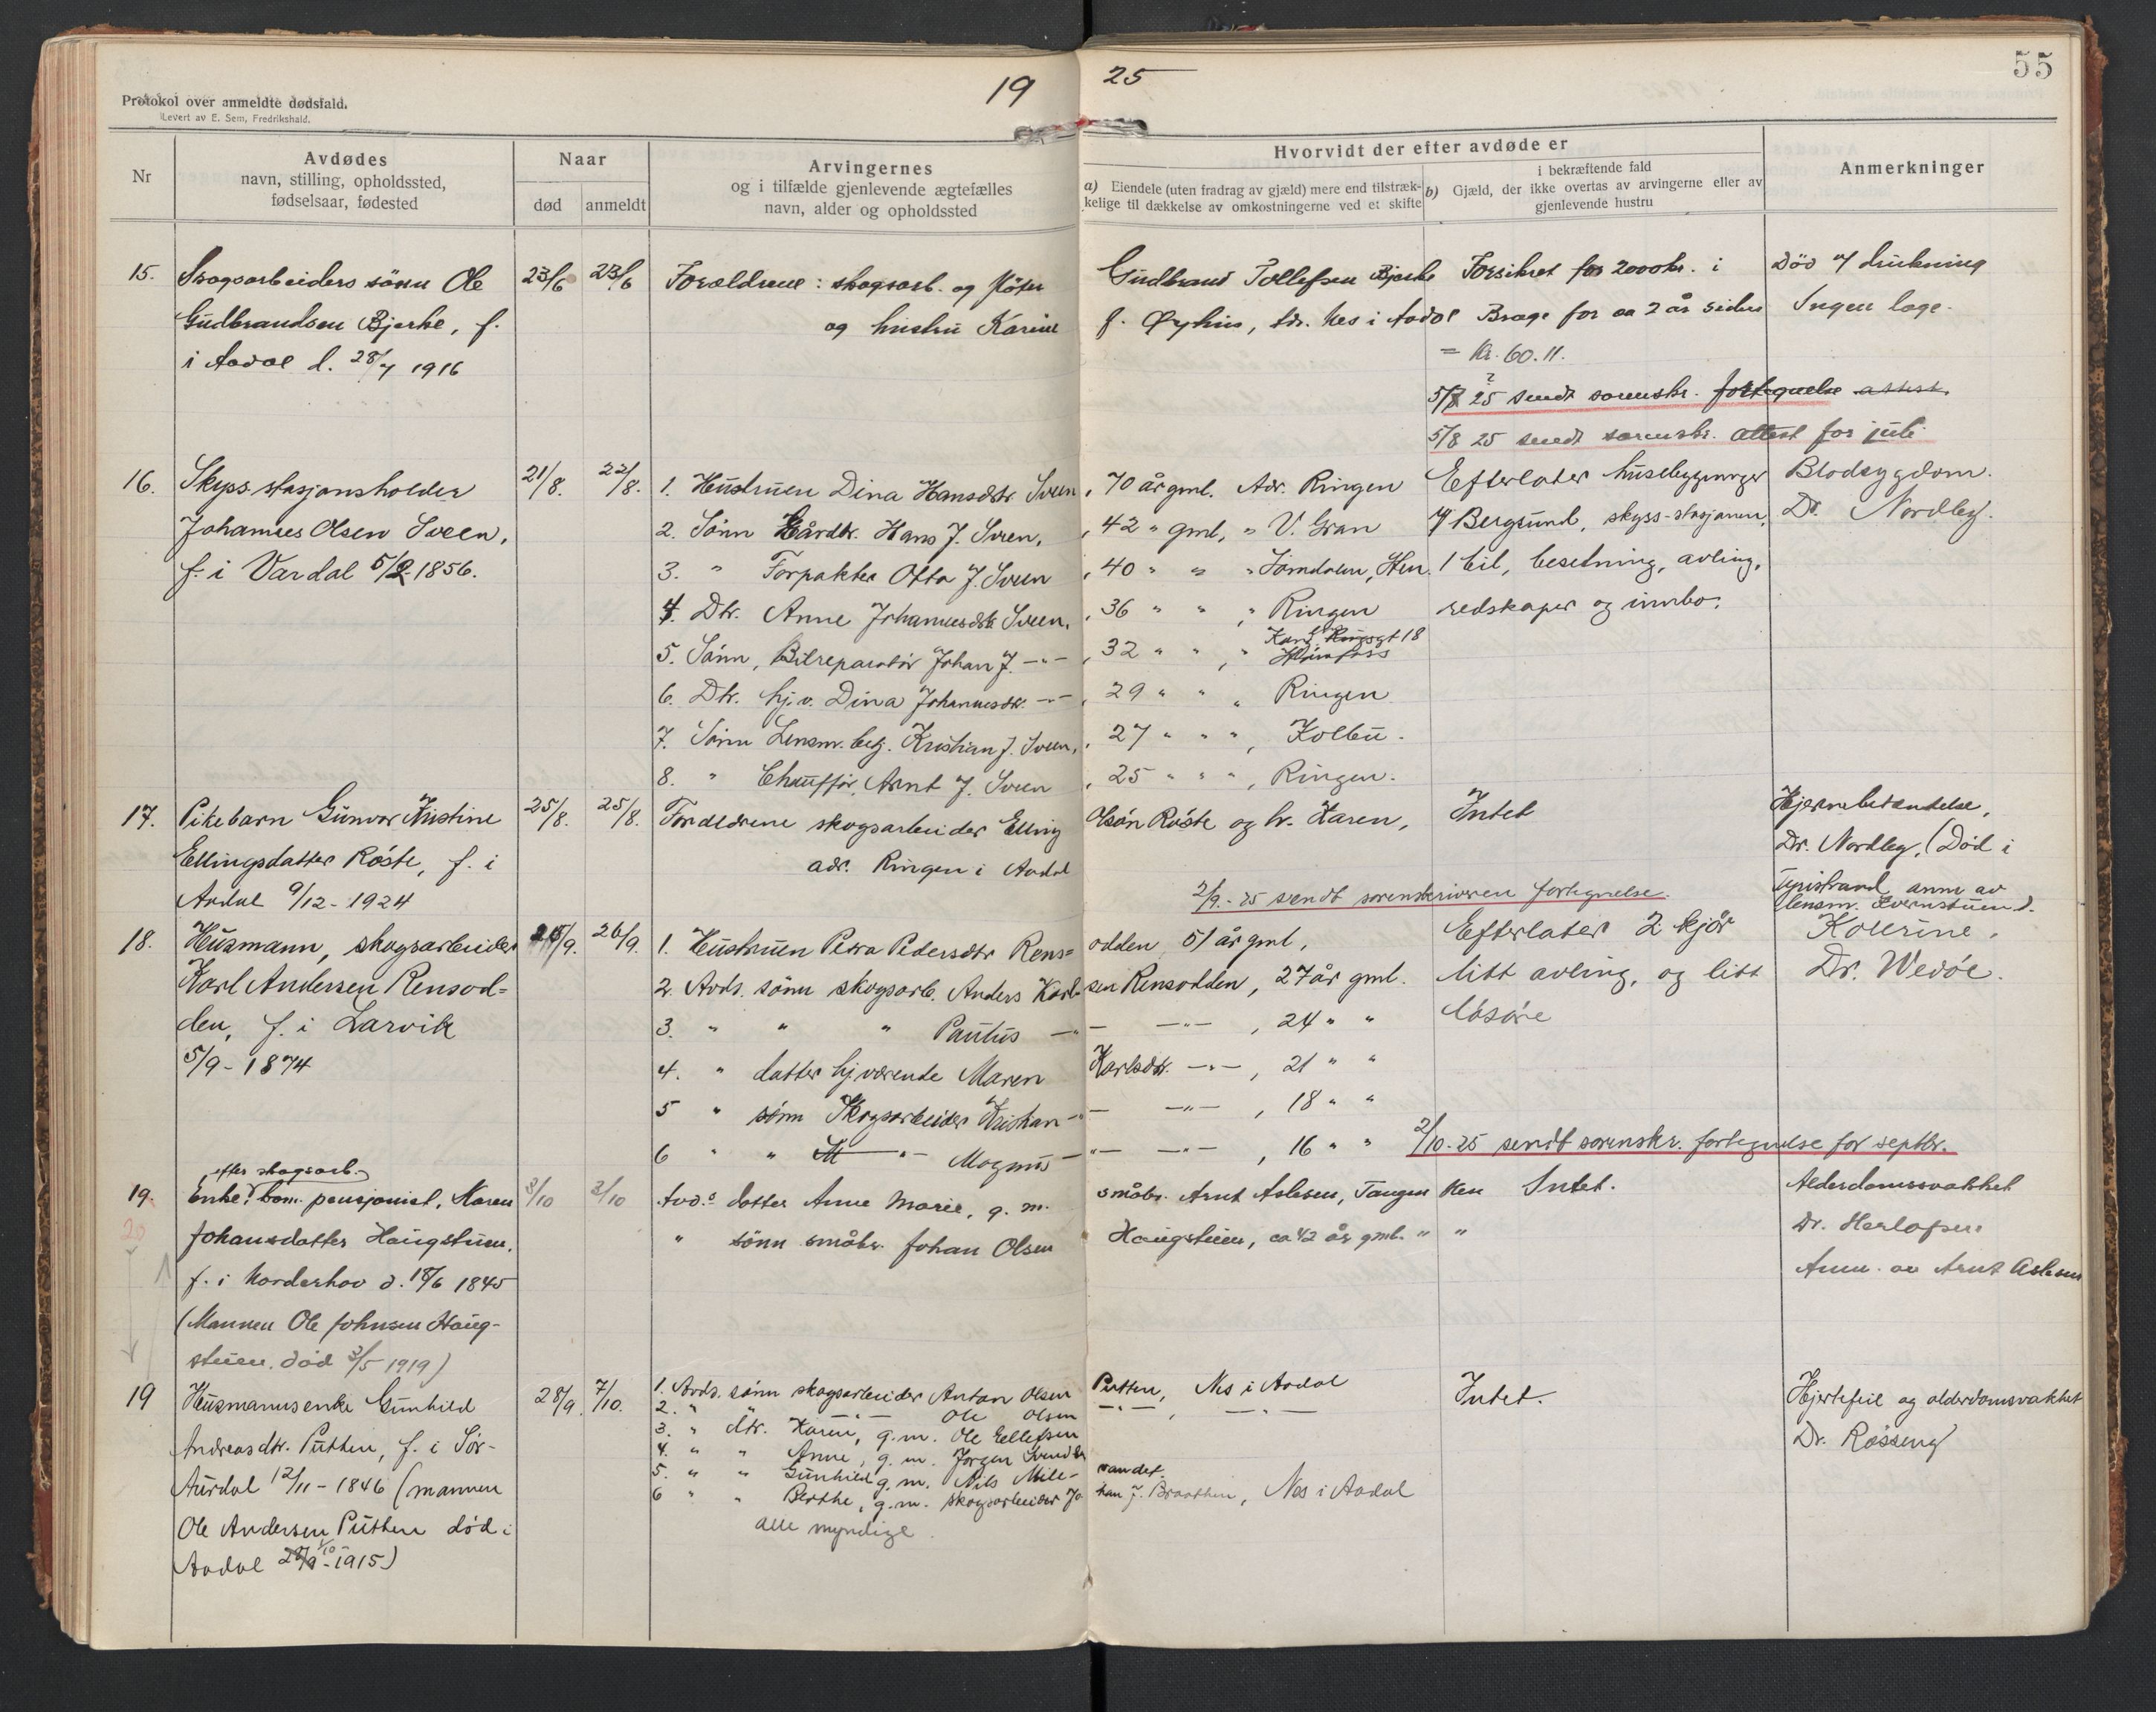 55
19 25
Protokol over anmeldte dødsfald.
Levert av E. Sem, Fredrikshald.
Nr
Avdødes
navn, stilling, opholdssted,
fødselsaar, fødested
Naar
død anmeldt
Arvingernes
og i tilfælde gjenlevende ægtefælles
navn, alder og opholdssted
Hvorvidt der efter avdøde er
a) Eiendele (uten fradrag av gjæld) mere end tilstræk-
kelige til dækkelse av omkostningerne ved et skifte
i bekræftende fald
b) Gjæld, der ikke overtas av arvingerne eller av
gjenlevende hustru
Anmerkninger
15. Skogsarbeiders sønn Ole
Gudbrandsen Bjerke, f.
i Aadal d. 28/7 1916
23/6 23/6
Forældrene: skogsarb. og fløter Gudbrand Tollefsen Bjerke
og hustru Karine f. Øyhus, adr. Nes i Aadal
Forsikret for 2000 kr. i
Brage for ca 2 år siden
= Kr. 60.11.
5/7 25 sendt sorenskr. fortegnelse attest.
5/8 25 sendt sorenskr. attest for juli
Død v/ drukning
Ingen læge.
16. Skyss-stasjonsholder
Johannes Olsen Sveen,
f. i Vardal 5/2-1856.
21/8. 22/8.
1. Hustruen Dina Hansdtr Sveen, 70 år gml. Adr. Ringen
2. Sønn Gårdbr. Hans J. Sveen, 42 " gml, " V. Gran
3. " Forpakter Otto J. Sveen, 40 " " " Somdalen, Hen.
4. Dtr. Anne Johannesdtr Sveen, 36 " " , Ringen
5. Sønn, Bilreparatør Johan J. -"- , 32 " " , " Hønefoss
6. Dtr. hj.v. Dina Johannesdtr. -"- , 29 " " , Ringen
7. Sønn Lensm. betj. Kristian J. Sveen, 27 " " " , Kolbu.
8. " Chauffør, Arnt J. Sveen, 25 " " " , Ringen.
Efterlater husebygninger
på Bergsund, skyss-stasjonen,
1 bil, besetning, avling,
redskaper og innbo.
Blodsygdom.
Dr. Nordley.
17. Pikebarn Gunvor Kristine
Ellingsdatter Røste, f. i
Aadal 9/12-1924
25/8. 25/8.
Foreldrene skogsarbeider Elling Olsøn Røste og h. Karen,
adr. Ringen i Aadal
Intet
2/9.-25 sendt sorenskriveren fortegnelse.
Hjernebetændelse,
Dr. Nordley, (Død i
Tyristrand, anm av
lensm.
18. Husmann, skogsarbeider
Karl Andersen Rensod=
den, f. i Larvik
5/9-1874
25/9. 26/9.
1. Hustruen Petra Pedersdtr Rens= odden, 51 år gml,
2. Avds. sønn skogsarb. Anders Karl- sen Rensodden, 27 år gml.
3. " " " Paulus -"- -"- , 24 " "
4. " datter hj.værende Maren Karlsdtr. -"- , 21 " "
5 " sønn Skogsarbeider Kristian -"- -"- , 18 " "
6 " " -"- Magnus -"- -"- , 16 " "
Efterlater 2 kjør
litt avling, og litt
løsøre
2/10-25 sendt sorenskr. fortegnelse for septbr.
Dr. Wedøe.
19. efter skogsarb.
20
Enke, kom. pensjonist, Karen
Johansdatter Haugstuen,
f. i Norderhov d. 18/6 1845
(Mannen Ole Johnsen Haug-
stuen. død 3/5 1919)
3/10 3/10
Avd.s datter Anne Marie, g. m. småbr. Arnt Aslesen, Tangen Hen
" sønn småbr. Johan Olsen Haugstuen, ca 42 år gml. " "
Intet.
Alderdomssvakhet
Dr. Herlofsen
Anm. av Arnt Aslesen
19 Husmannsenke Gunhild
Andreasdtr. Putten, f. i Sør-
Aurdal 12/11-1846 (mannen
Ole Andersen Putten død i
Aadal 1/10-1915)
28/9. 7/10.
1. Avds. sønn skogsarbeider Anton Olsen Putten, Nes i Aadal
2. " " -"- Ole Olsen -"- , -"-
3. " dtr. Karen, g.m. Ole Ellefsen
4. " " Anne, g.m. Jørgen
5. " " Gunhild g.m. Nils
6 " " Berthe, g.m. skogsarbeider Jo- han J. Braathen, Nes i Aadal
alle myndige.
Intet.
Hjertefeil og alderdomsvakhet
Dr. Røsseng